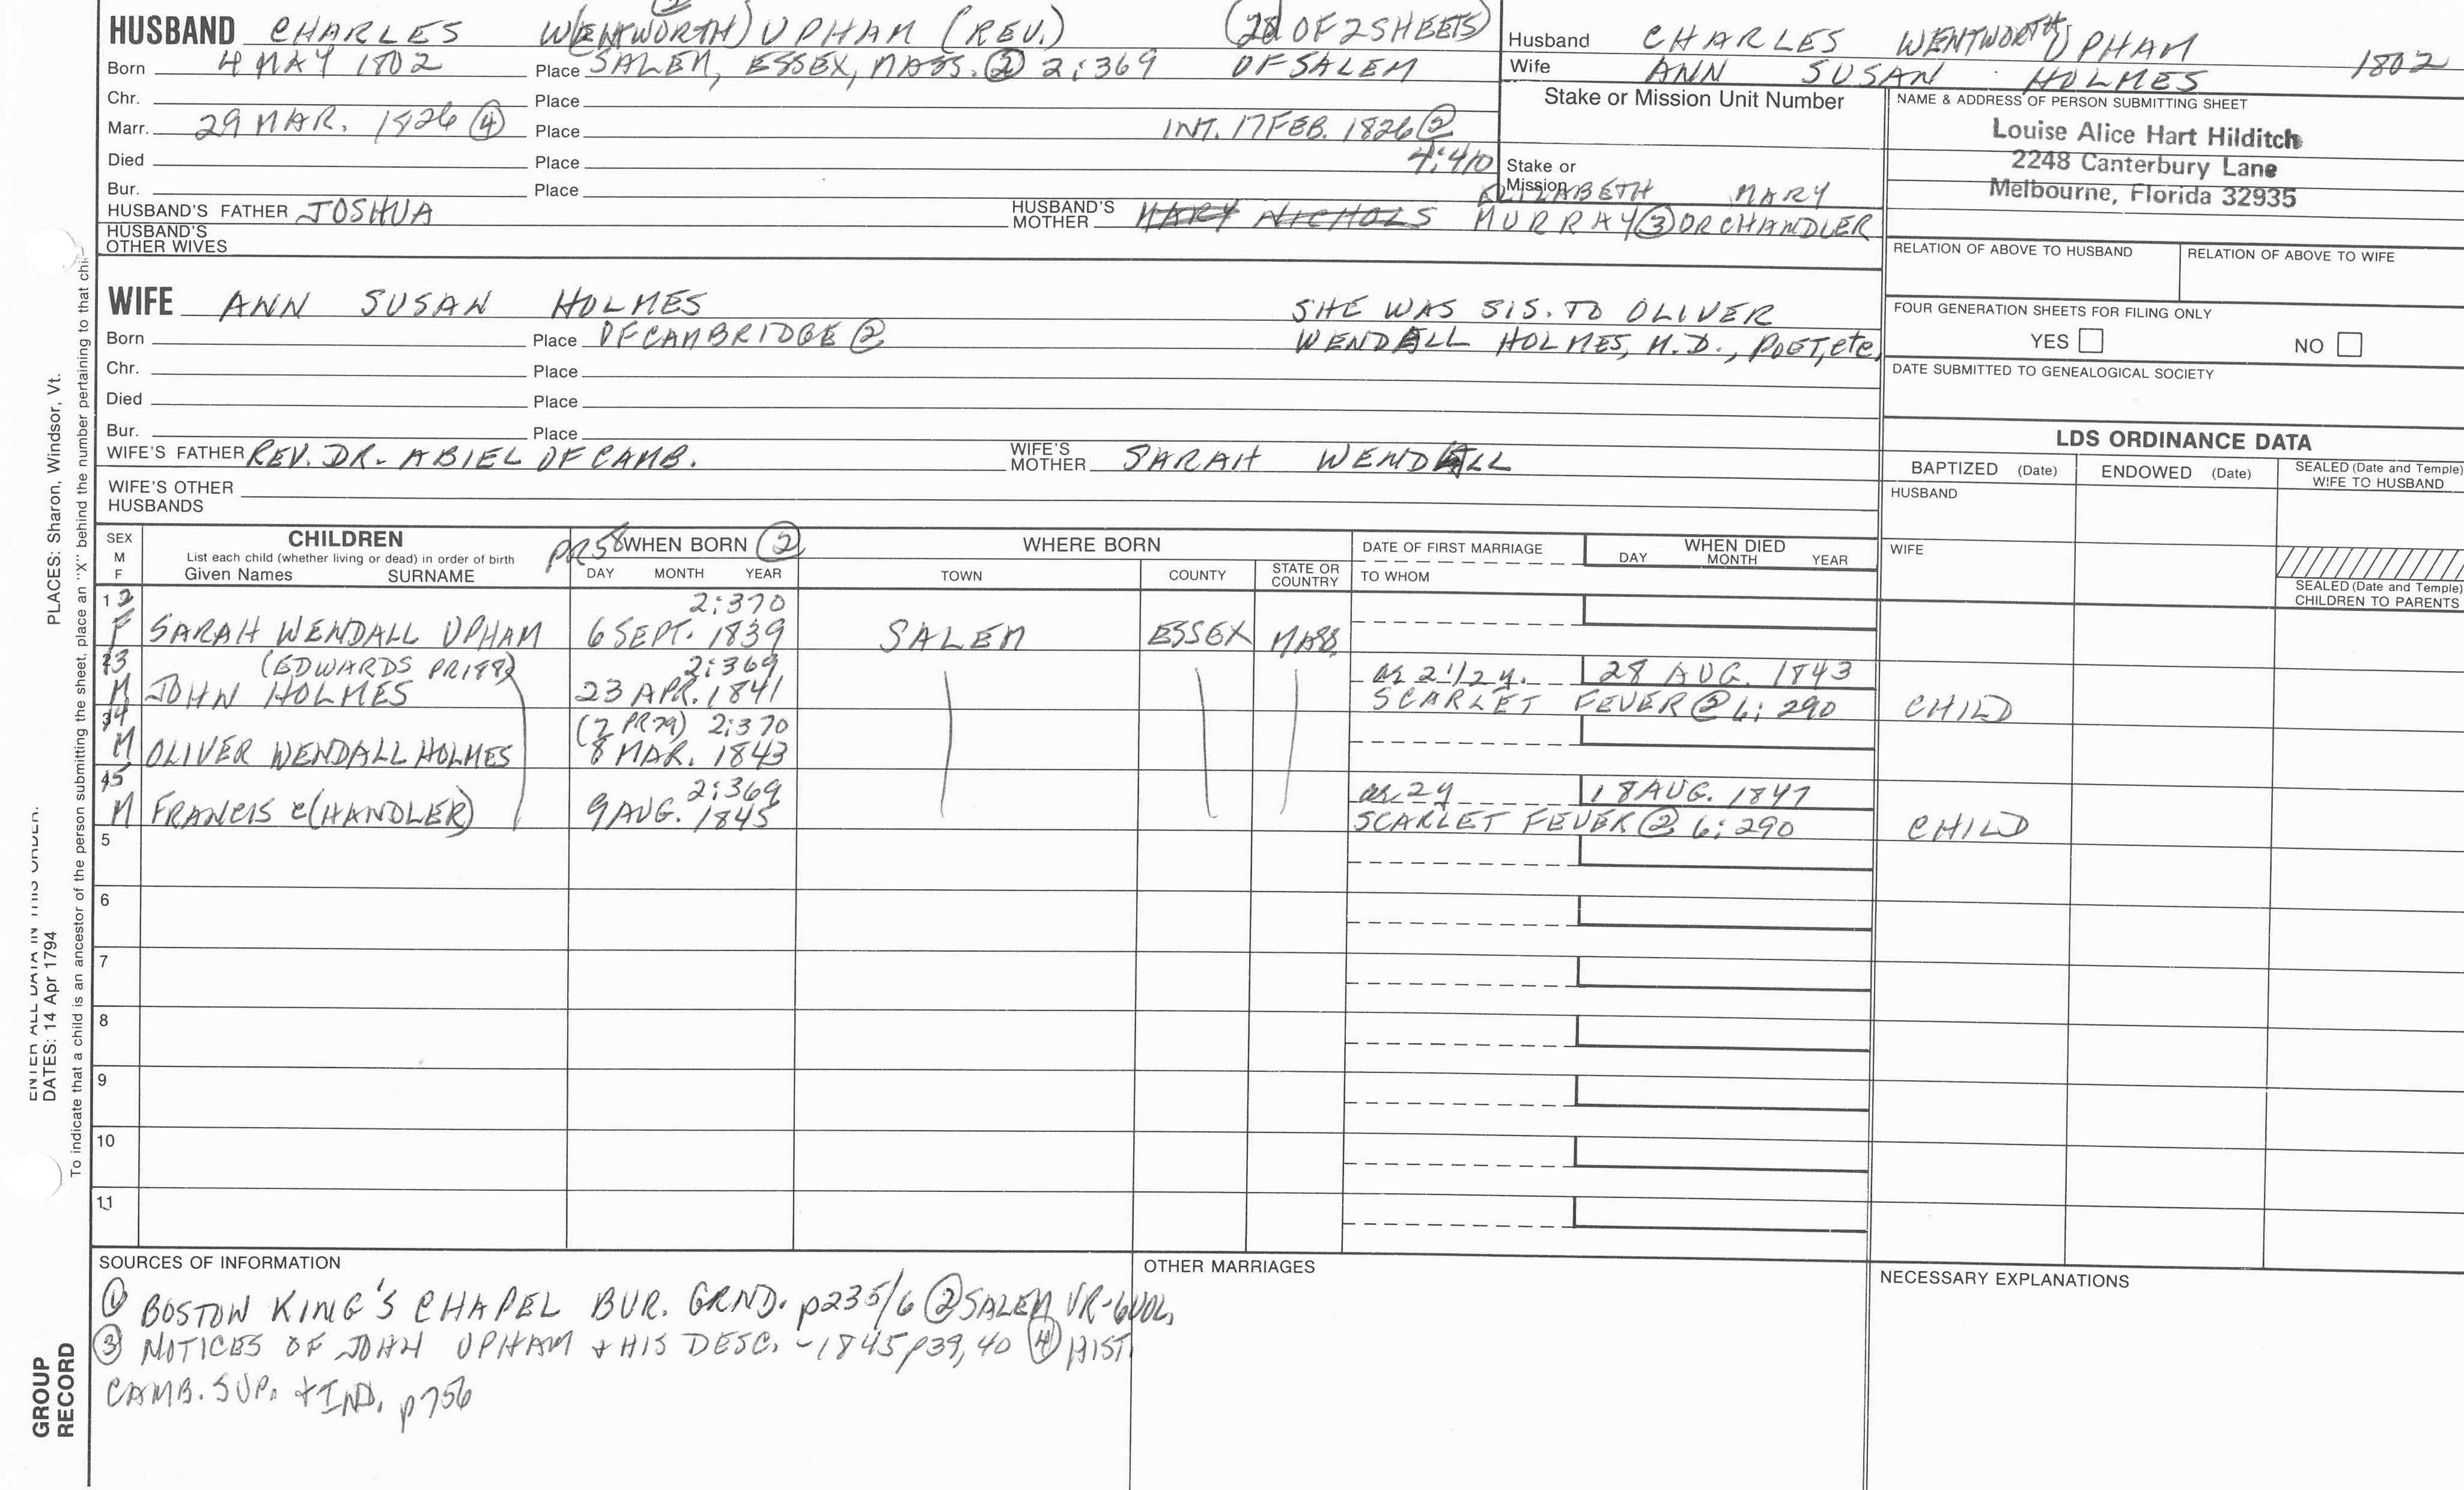 HUSBAND CHARLES W(ENTWORTH) UPHAM (REV.) (2d OF 2 SHEETS)
Born 4 MAY 1802 Place SALEM, ESSEX, MASS. ② 2:369 OF SALEM
Chr. Place
Marr. 29 MAR. 1826 ④ Place INT. 17 FEB. 1826 ②
4:410
Died Place
Bur. Place
HUSBAND'S FATHER JOSHUA HUSBAND'S MOTHER MARY NICHOLS ELIZABETH MARY
MURRAY ③ OR CHANDLER
HUSBAND'S OTHER WIVES
Husband CHARLES WENTWORTH UPHAM 1802
Wife ANN SUSAN HOLMES
Stake or Mission Unit Number
Stake or
Mission
NAME & ADDRESS OF PERSON SUBMITTING SHEET
Louise Alice Hart Hilditch
2248 Canterbury Lane
Melbourne, Florida 32935
RELATION OF ABOVE TO HUSBAND RELATION OF ABOVE TO WIFE
FOUR GENERATION SHEETS FOR FILING ONLY
YES NO
DATE SUBMITTED TO GENEALOGICAL SOCIETY
WIFE ANN SUSAN HOLMES SHE WAS SIS. TO OLIVER
WENDELL HOLMES, M.D., POET, etc,
Born Place OF CAMBRIDGE ②
Chr. Place
Died Place
Bur. Place
WIFE'S FATHER REV. DR. ABIEL OF CAMB. WIFE'S MOTHER SARAH WENDELL
WIFE'S OTHER
HUSBANDS
LDS ORDINANCE DATA
BAPTIZED (Date) ENDOWED (Date) SEALED (Date and Temple)
WIFE TO HUSBAND
HUSBAND
WIFE
SEALED (Date and Temple)
CHILDREN TO PARENTS
SEX
M
F
CHILDREN
List each child (whether living or dead) in order of birth
Given Names SURNAME
PR58 WHEN BORN ②
DAY MONTH YEAR
WHERE BORN
TOWN COUNTY STATE OR COUNTRY
DATE OF FIRST MARRIAGE
TO WHOM
WHEN DIED
DAY MONTH YEAR
1 2 2:370
F SARAH WENDALL UPHAM 6 SEPT. 1839 SALEM ESSEX MASS
2 3 (EDWARDS PR188) 2:369 as 2 1/2 y. 28 AUG. 1843
M JOHN HOLMES 23 APR. 1841 SCARLET FEVER ② 6:290 CHILD
3 4 (7 PR79) 2:370
M OLIVER WENDALL HOLMES 8 MAR. 1843
4 5 2:369 as 2y 18 AUG. 1847
M FRANCIS C(HANDLER) 9 AUG. 1845 SCARLET FEVER ② 6:290 CHILD
5
6
7
8
9
10
11
SOURCES OF INFORMATION
① BOSTON KING'S CHAPEL BUR. GRND. p235/6 ② SALEM VR-6VOL,
③ NOTICES OF JOHN UPHAM & HIS DESC. -1845 p39,40 ④ HIST
CAMB. SUP. & IND. p756
OTHER MARRIAGES
NECESSARY EXPLANATIONS
PLACES: Sharon, Windsor, Vt.
DATES: 14 Apr 1794
To indicate that a child is an ancestor of the person submitting the sheet, place an "X" behind the number pertaining to that chi
GROUP
RECORD